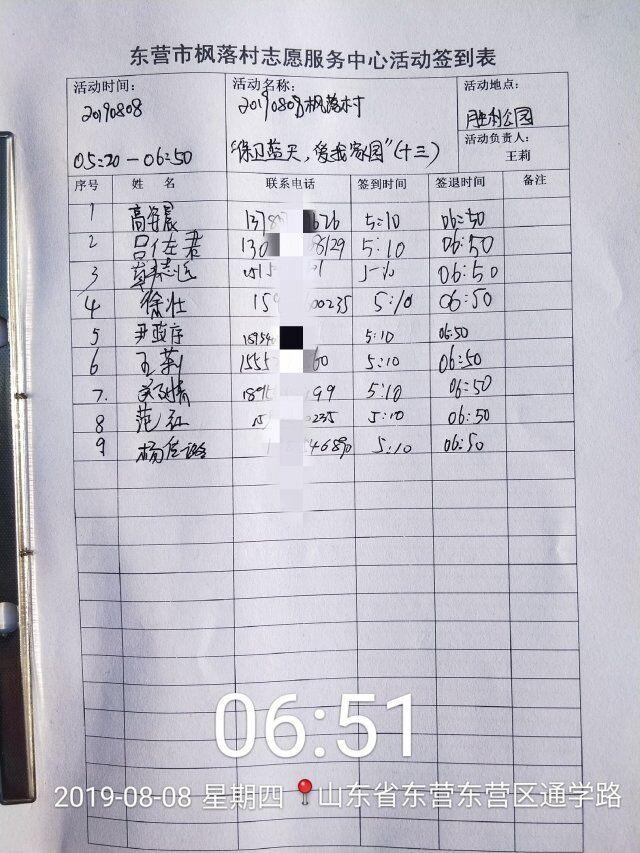 东营市枫落村志愿服务中心活动签到表
活动时间: 活动名称: 活动地点:
20190808 20190808枫落村 胜利公园
活动负责人:
05:20-06:50 "保卫蓝天,爱我家园"(十三) 王莉
序号 姓 名 联系电话 签到时间 签退时间 备注
1 高 晨 137 626 5:10 06:50
2 吕佐君 130 8129 5:10 06:50
3 志远 06:50
4 徐壮 15 00235 5:10 06:50
5 尹政序 5:10 06:50
6 王莉 1555 60 5:10 06:50
7. 倩 189 199 5:10 06:50
8 范红 15 0235 5:10 06:50
9 杨 546890 5:10 06:50
06:51
2019-08-08 星期四 山东省东营东营区通学路